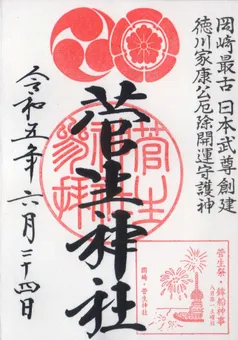 岡崎最古 日本武尊創建
徳川家康公厄除開運守護神
菅生神社
令和五年 六月二十四日
菅生祭・鉾船神事
岡崎・菅生神社